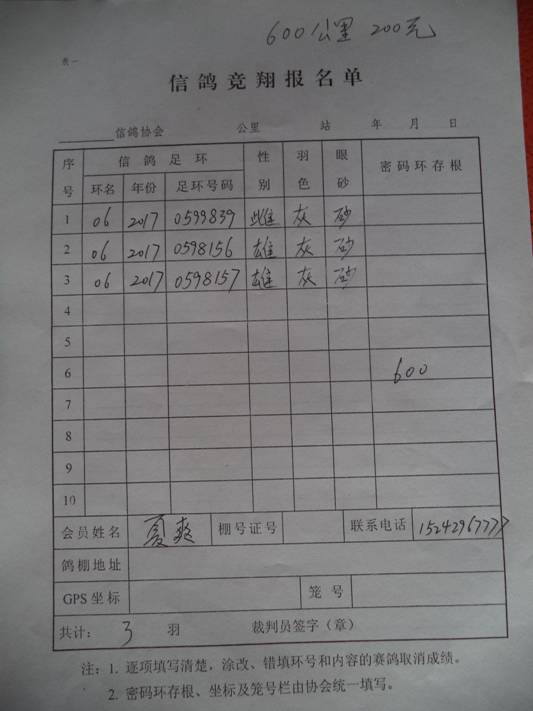 600公里 200元
表一
信鸽竞翔报名单
信鸽协会 公里 站 年 月 日
序号 信鸽足环 性别 羽色 眼砂 密码环存根
环名 年份 足环号码
1 06 2017 0599839 雌 灰 砂
2 06 2017 0598156 雄 灰 砂
3 06 2017 0598157 雄 灰 砂
4
5
6 600
7
8
9
10
会员姓名 夏爽 棚号证号 联系电话 15242967777
鸽棚地址
GPS坐标 笼号
共计: 3 羽 裁判员签字(章)
注: 1. 逐项填写清楚，涂改、错填环号和内容的赛鸽取消成绩。
2. 密码环存根、坐标及笼号栏由协会统一填写。